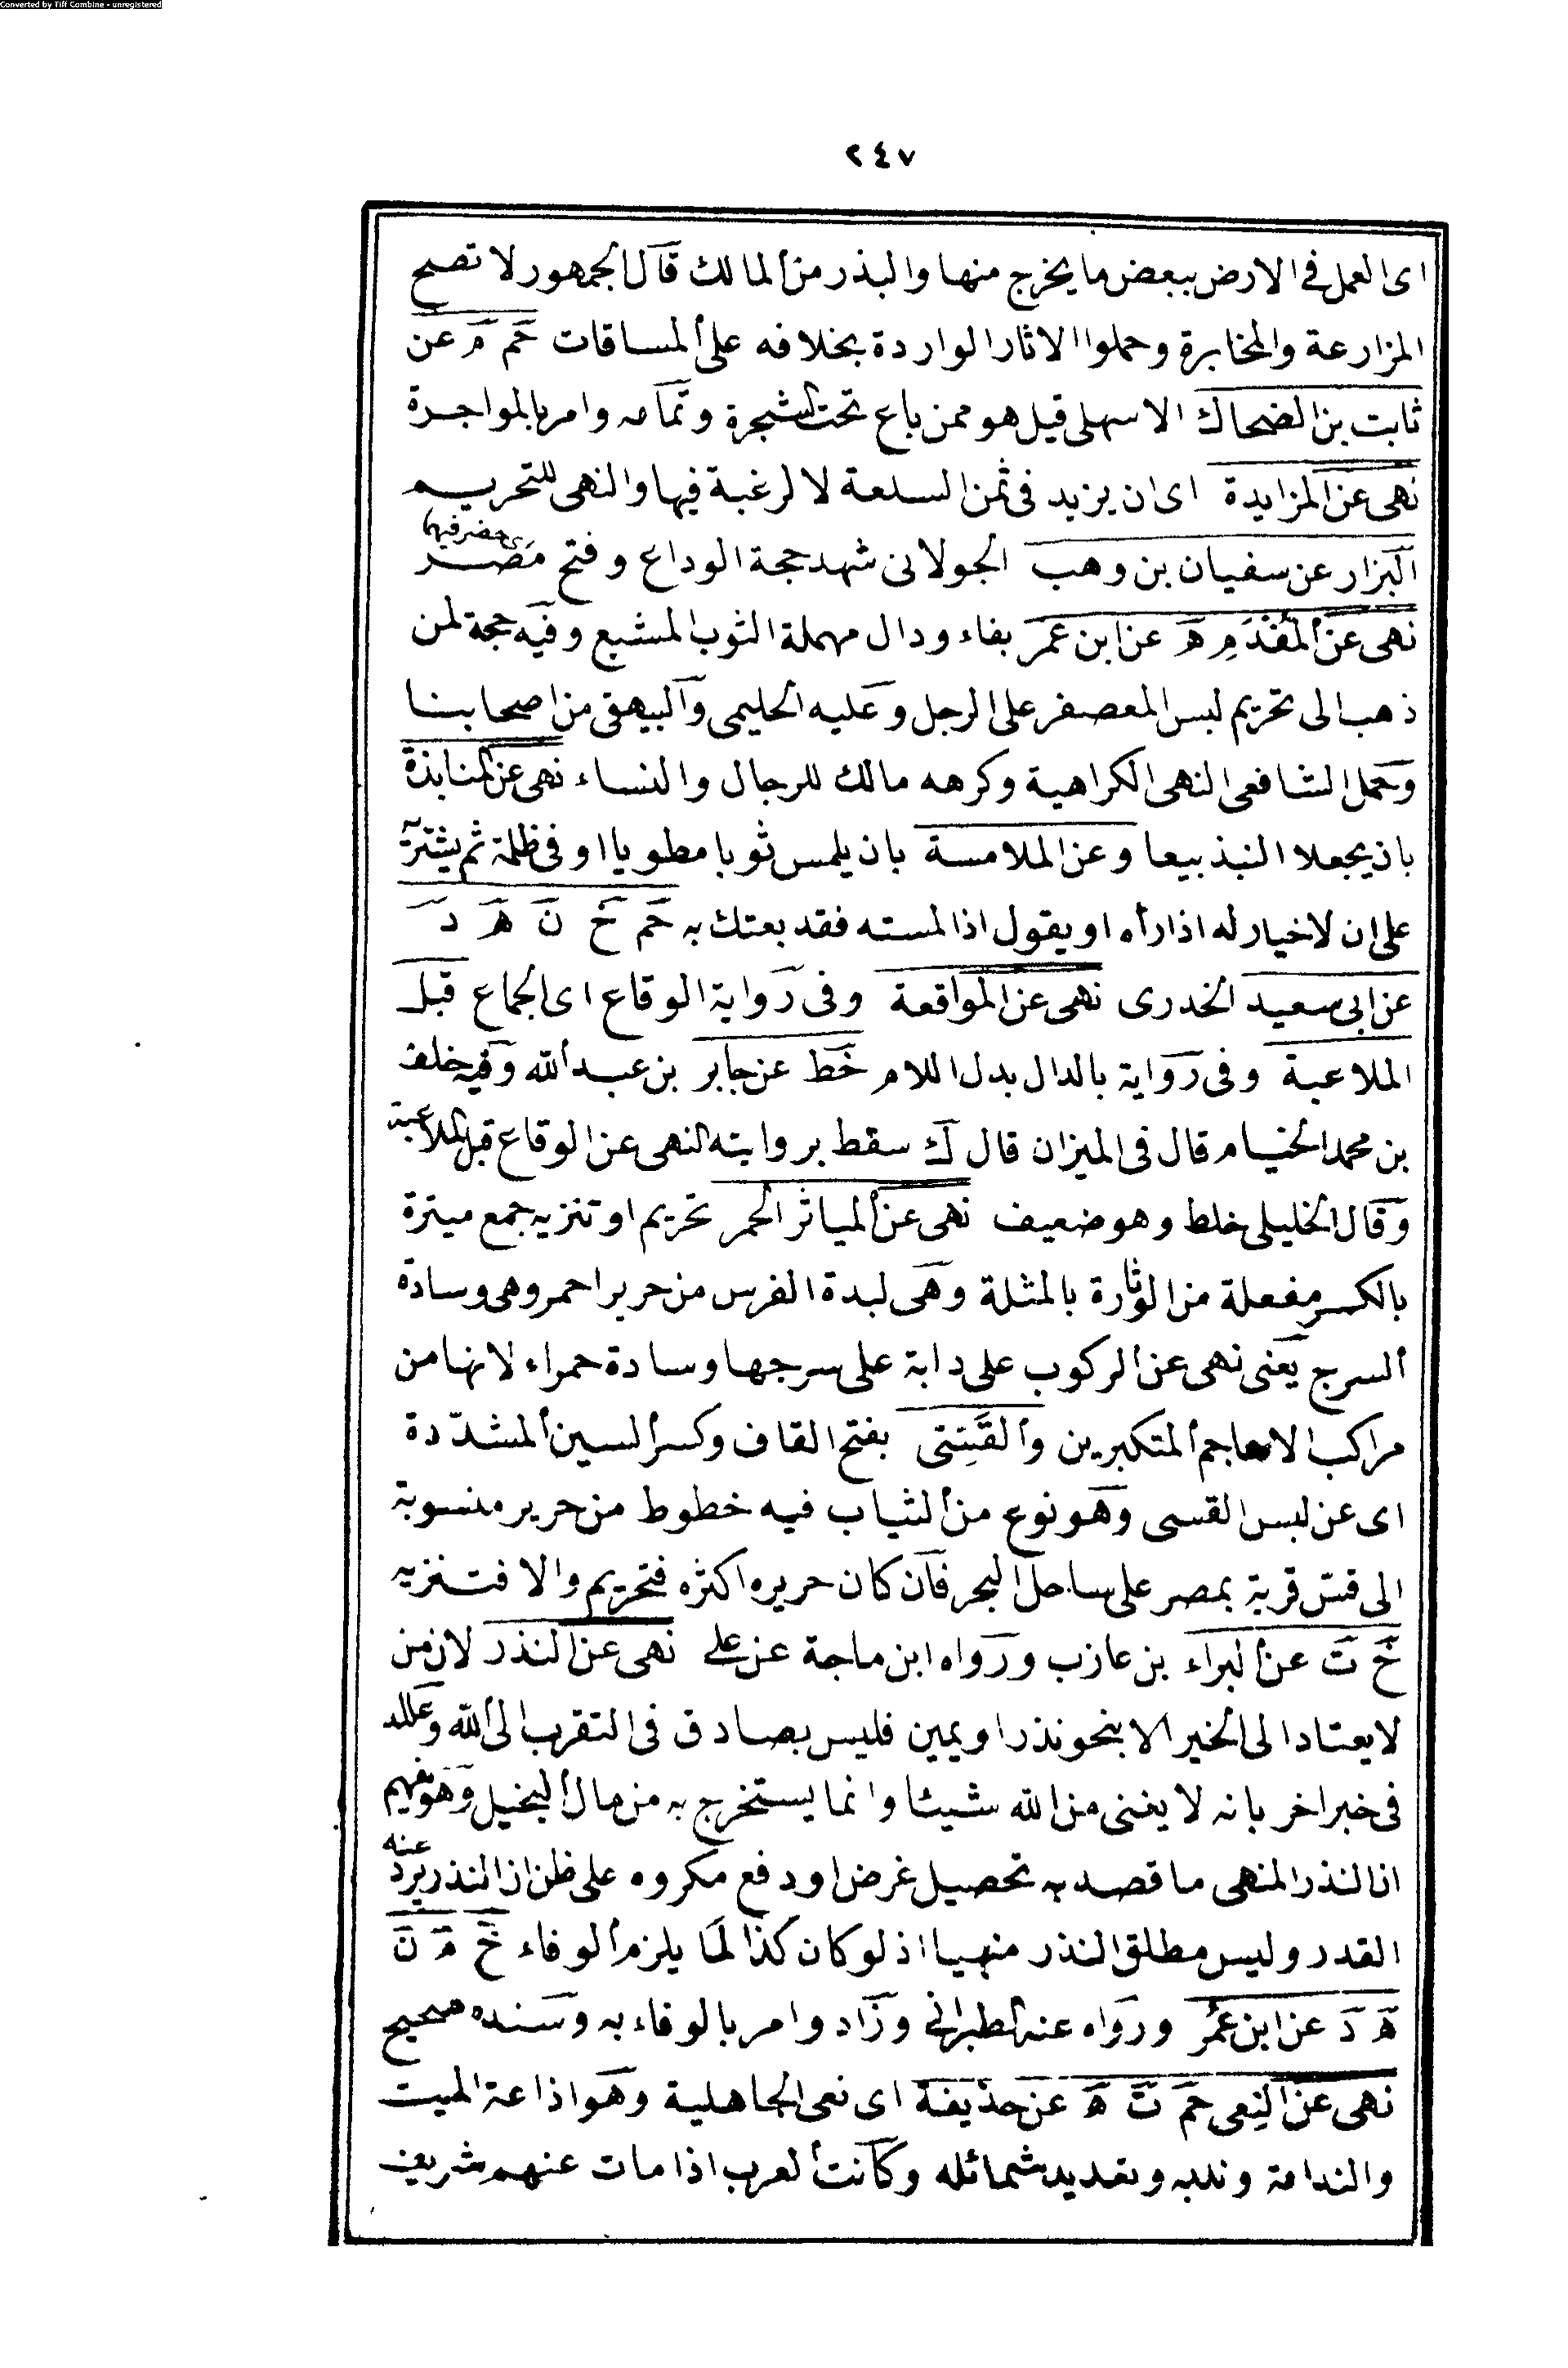 Converted by Tiff Combine - unregistered
٢٤٧
اى العمل فى الارض ببعض ما يخرج منها والبذر من المالك قال الجمهور لا تصح
المزارعة والمخابرة وحملوا الاثار الواردة بخلافه على المساقات حم م عن
ثابت بن الضحاك الاسهلى قيل هو ممن باع تحت الشجرة وتمامه وامر بالمواجرة
نهى عن المزايدة اى ان يزيد فى ثمن السلعة لا لرغبة فيها والنهى للتحريم
البزار عن سفيان بن وهب الجولانى شهد حجة الوداع وفتح مصر اى حضر فيها
نهى عن المفدم ه عن ابن عمر بفاء ودال مهملة الثوب المشبع وفيه حجة لمن
ذهب الى تحريم لبس المعصفر على الرجل وعليه الحليمى والبيهقى من اصحابنا
وحمل الشافعى النهى الكراهية وكرهه مالك للرجال والنساء نهى عن المنابذة
بان يجعلا النبذ بيعا وعن الملامسة بان يلمس ثوبا مطويا او فى ظلمة ثم يشتره
على ان لا خيار له اذا رأه او يقول اذا لمسته فقد بعتك به حم خ ن ه د
عن ابى سعيد الخدرى نهى عن المواقعة وفى رواية الوقاع اى الجماع قبل
الملاعبة وفى رواية بالدال بدل اللام خط عن جابر بن عبد الله وفيه خلف
بن محمد الخيام قال فى الميزان قال ك سقط بروايته النهى عن الوقاع قبل الملاعبة
وقال الخليلى خلط وهو ضعيف نهى عن المياثر الحمر تحريم او تنزيه جمع ميترة
بالكسر مفعلة من الوثارة بالمثلة وهى لبدة الفرس من حرير احمر وهى وسادة
السرج يعنى نهى عن الركوب على دابة على سرجها وسادة حمراء لانها من
مراكب الاعاجم المتكبرين والقسى بفتح القاف وكسر السين المشددة
اى عن لبس القسى وهو نوع من الثياب فيه خطوط من حرير منسوبة
الى قس قرية بمصر على ساحل البحر فان كان حريره اكثره فتحريم والا فتنزيه
خ ت عن البراء بن عازب ورواه ابن ماجة عن على نهى عن النذر لان من
لا يعتاد الى الخير الا بنحو نذر او يمين فليس بصادق فى التقرب الى الله وعلله
فى خبر اخر بانه لا يغنى من الله شيئا وانما يستخرج به من مال البخيل وهو يفهم
ان النذر المنهى ما قصد به تحصيل غرض او دفع مكروه على ظن ان النذر يرد عنه
القدر وليس مطلق النذر منهيا اذ لو كان كذا لما يلزم الوفاء خ م ن
ه د عن ابن عمر ورواه عنه الطبرانى وزاد وامر بالوفاء به وسنده صحيح
نهى عن النعى حم ت ه عن حذيفة اى نعى الجاهلية وهو اذاعة الميت
والندامة وندبه وتعديد شمائله وكانت العرب اذا مات عنهم شريف